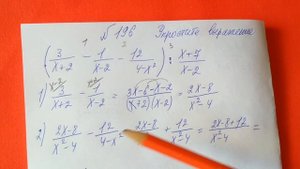 № 196 Упростите выражение
1 2 3
(3/(x+2) − 1/(x−2) − 12/(4−x²)) : (x+7)/(x−2)
1) 3/(x+2) − 1/(x−2) = (3x−6−x−2)/((x+2)(x−2)) = (2x−8)/(x²−4)
2) (2x−8)/(x²−4) − 12/(4−x²) (2x−8)/(x²−4) + 12/(x²−4) = (2x−8+12)/(x²−4) =